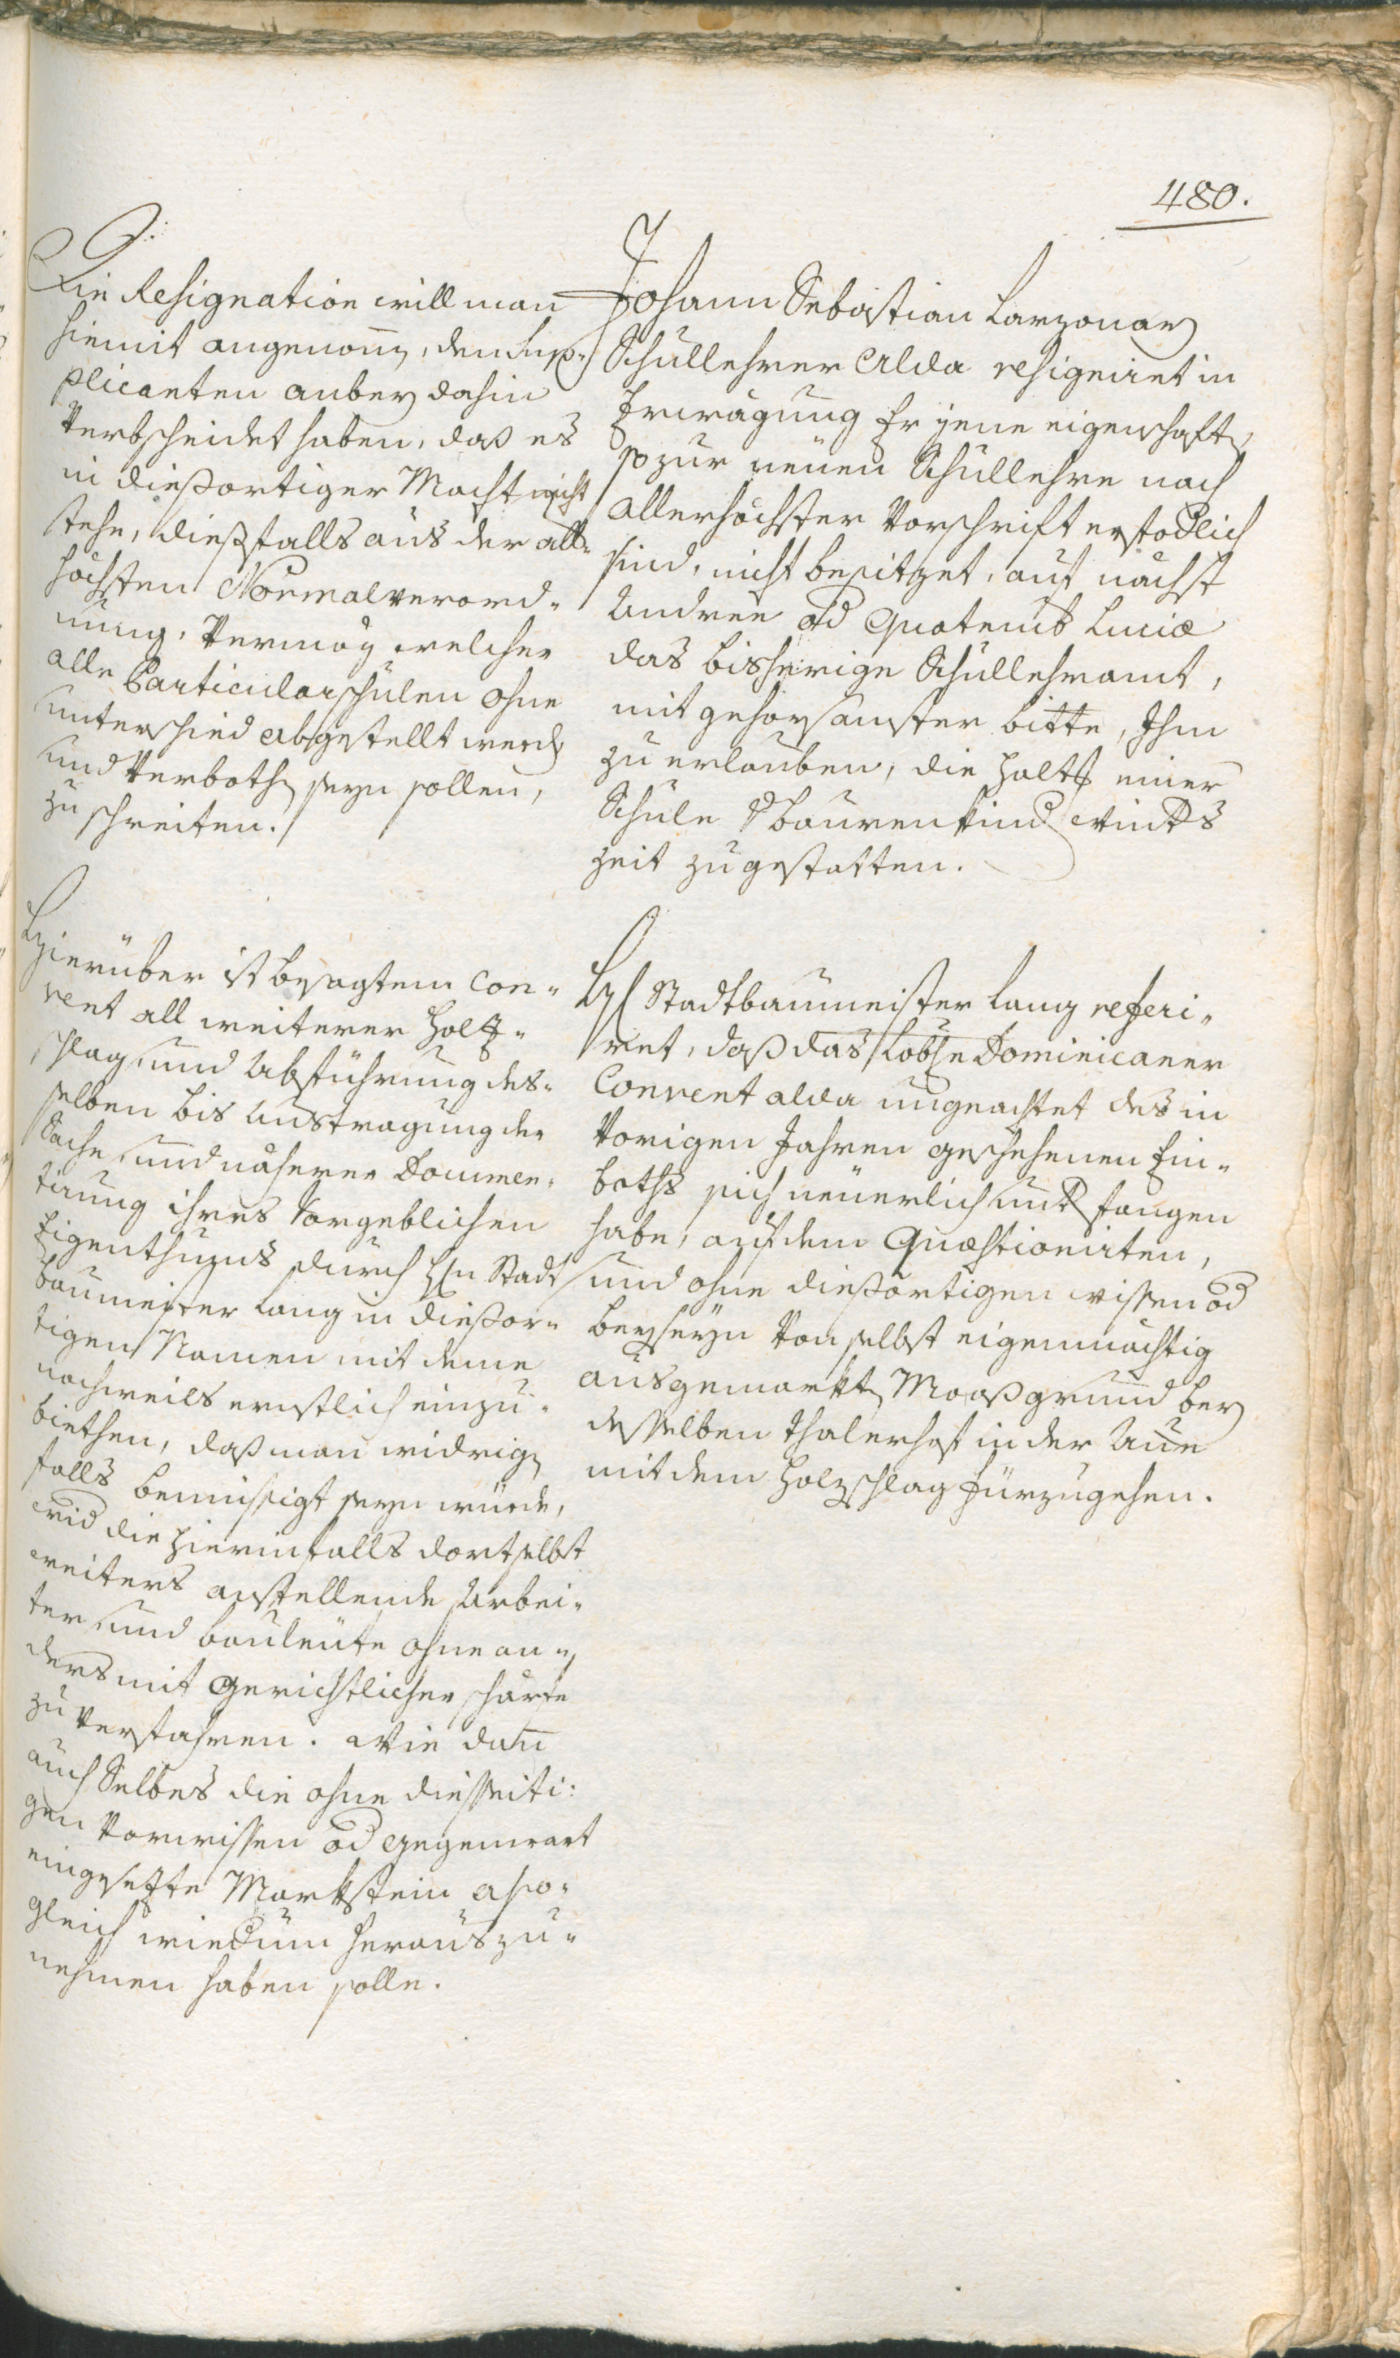 480.
Die Resignation will man
hiemit angenom̄en, den Sup-
plicanten anbey dahin
verbscheidet haben, daß es
in dießortiger Macht nicht
stehe, dießfalls aus der aller-
höchsten Normalverord-
nung, vermög welcher
alle Particularschulen ohne
unterschied abgestellt werden
und verbothen seyn sollen,
zu schreiten.
Hierüber ist besagtem Con-
vent all weiterer Holz-
schlag und Abführung des-
selben bis Austragung der
Sache, und näherer Documen-
tirung ihres vorgeblichen
Eigenthums durch Hn Stadt
baumeister Lang in dießor-
tigen Namen mit deme
nochweils ernstlich einzu-
biethen, daß man widrigen
falls bemüssigt seyn würde,
wid die hierinfalls dortselbst
weiters anstellende Arbei-
ter und Bauleüte ohne an-
ders mit gerichtlicher schärfe
zu verfahren. Wie dan̄
auch Selbes die ohne diesseiti-
gen Vorwissen od gegenwart
eingesetzte Markstein also-
gleich wiedum herauszu-
nehmen haben solle.
Johann Sebastian Larzonay
Schullehrer alda resigniret in
Erwägung Er jene eigenschaften,
so zur neüen Schullehre nach
allerhöchster Vorschrift erfodlich
sind, nicht besitzet, auf nächst
Andree od Quatemb Luciæ
das bisherige Schullehramt,
mit gehorsamster bitte, Ihm
zu erlauben, die Halt einer
Schule d Baurenkind Winters
zeit zugestatten.
H Stadtbaumeister Lang referi-
ret, daß das Lobl Dominicaner
Convent alda ungeachtet des in
vorigen Jahren geschehenen Ein-
boths sich neüerlich untfangen
habe, auf dem Quæstionirten,
und ohne dießortigen wissen od
beyseyn von selbst eigenmächtig
ausgemarkten Mooßgrund bey
desselben Thalerhof in der Aue
mit dem Holzschlag fürzugehen.